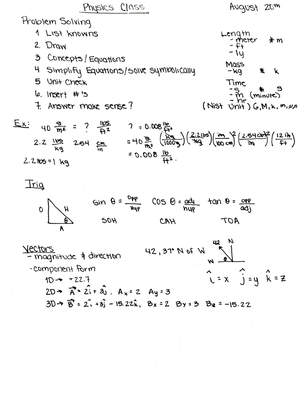 Physics Class
August 20th
Problem Solving
1 List knowns
2 Draw
3 Concepts/Equations
4 Simplify Equations/solve symbolically
5 Unit Check
6 Insert #'s
7 Answer make sense?
Length
- meter * m
- ft
- ly
Mass
- kg * k
Time
- s * s
- m (minute)
- hr
(Nist Unit) G, M, k, m, μ, n
Ex: 40 g/m² = ? lbs/ft² ? = 0.008 lb/ft²
2.2 lbs/kg 2.54 cm/in = 40 g/m² (kg/1000g)(2.2 lbs/kg)(m/100cm)²(2.54cm/in)²(12in/ft)²
2.2 lbs = 1 kg = 0.008 lb/ft²
Trig
O H θ A
sin θ = opp/hyp cos θ = adj/hyp tan θ = opp/adj
SOH CAH TOA
Vectors
- magnitude & direction
42, 37° N of W
N W θ
- component form
î = x ĵ = y k̂ = z
1D → -22.7
2D → A = 2î + 3ĵ, Ax = 2 Ay = 3
3D → B = 2î + 3ĵ - 15.22k̂, Bx = 2 By = 3 Bz = -15.22